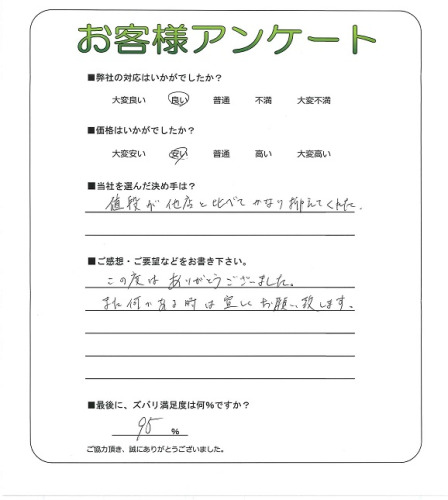 お客様アンケート
■弊社の対応はいかがでしたか?
大変良い 良い 普通 不満 大変不満
■価格はいかがでしたか?
大変安い 安い 普通 高い 大変高い
■当社を選んだ決め手は?
値段が他店と比べてかなり抑えてくれた。
■ご感想・ご要望などをお書き下さい。
この度はありがとうございました。
また何かある時は宜しくお願い致します。
■最後に、ズバリ満足度は何%ですか?
95 %
ご協力頂き、誠にありがとうございました。